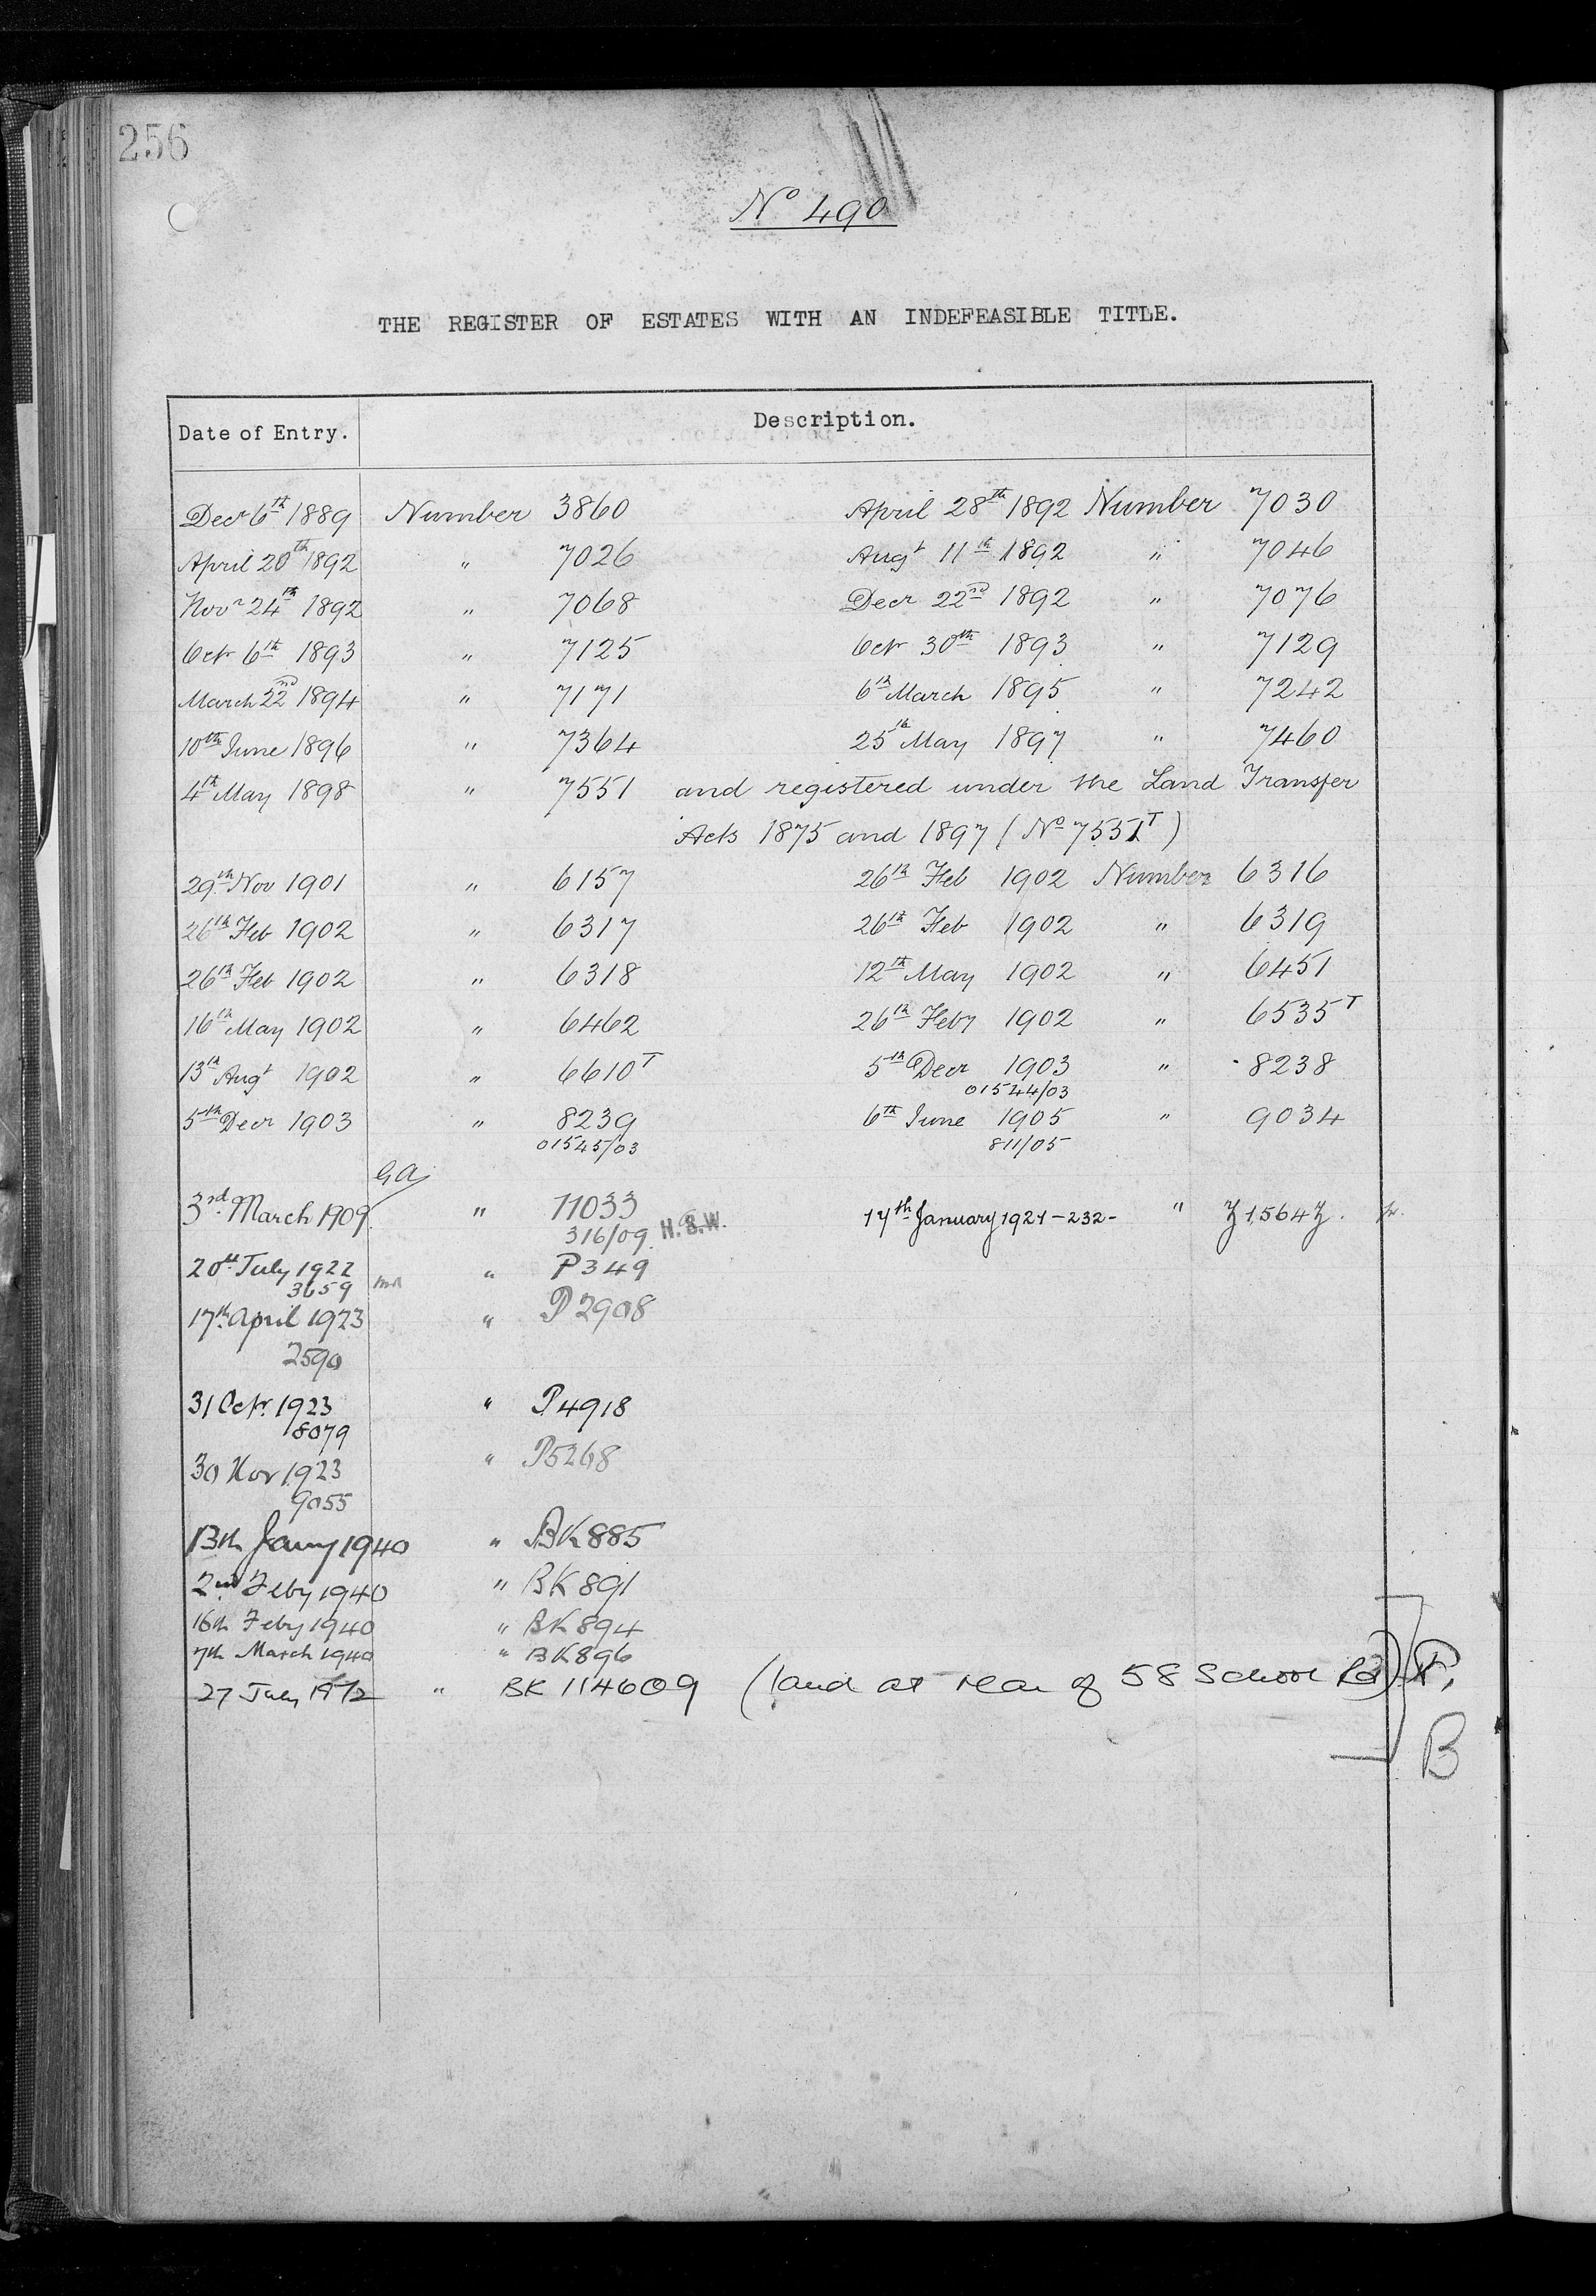 256
No 490
THE REGISTER OF ESTATES WITH AN INDEFEASIBLE TITLE.
Date of Entry. Description.
Decr 6th 1889 Number 3860 April 28th 1892 Number 7030
April 20th 1892 " 7026 Augt 11th 1892 " 7046
Novr 24th 1892 " 7068 Decr 22nd 1892 " 7076
Octr 6th 1893 " 7125 Octr 30th 1893 " 7129
March 22nd 1894 " 7171 6th March 1895 " 7242
10th June 1896 " 7364 25th May 1897 " 7460
4th May 1898 " 7551 and registered under the Land Transfer
Acts 1875 and 1897 (No 7551T)
29th Nov 1901 " 6157 26th Feb 1902 Number 6316
26th Feb 1902 " 6317 26th Feb 1902 " 6319
26th Feb 1902 " 6318 12th May 1902 " 6451
16th May 1902 " 6462 26th Feby 1902 " 6535T
13th Augt 1902 " 6610T 5th Decr 1903 " 8238
01544/03
5th Decr 1903 " 8239 6th June 1905 " 9034
01545/03 811/05
GA
3rd March 1909 " 11033 17th January 1921-232- " Z1564Z.
316/09 H.S.W.
20th July 1922 " P349
3659
17th April 1923 " P2908
2590
31 Octr. 1923 " P4918
8079
30 Nov 1923 " P5268
9055
13th Jany 1940 " BK885
2nd Feby 1940 " BK891
16th Feby 1940 " BK894
7th March 1940 " BK896
27 July 1972 " BK 114609 (land at rear of 58 School Rd) P.
B